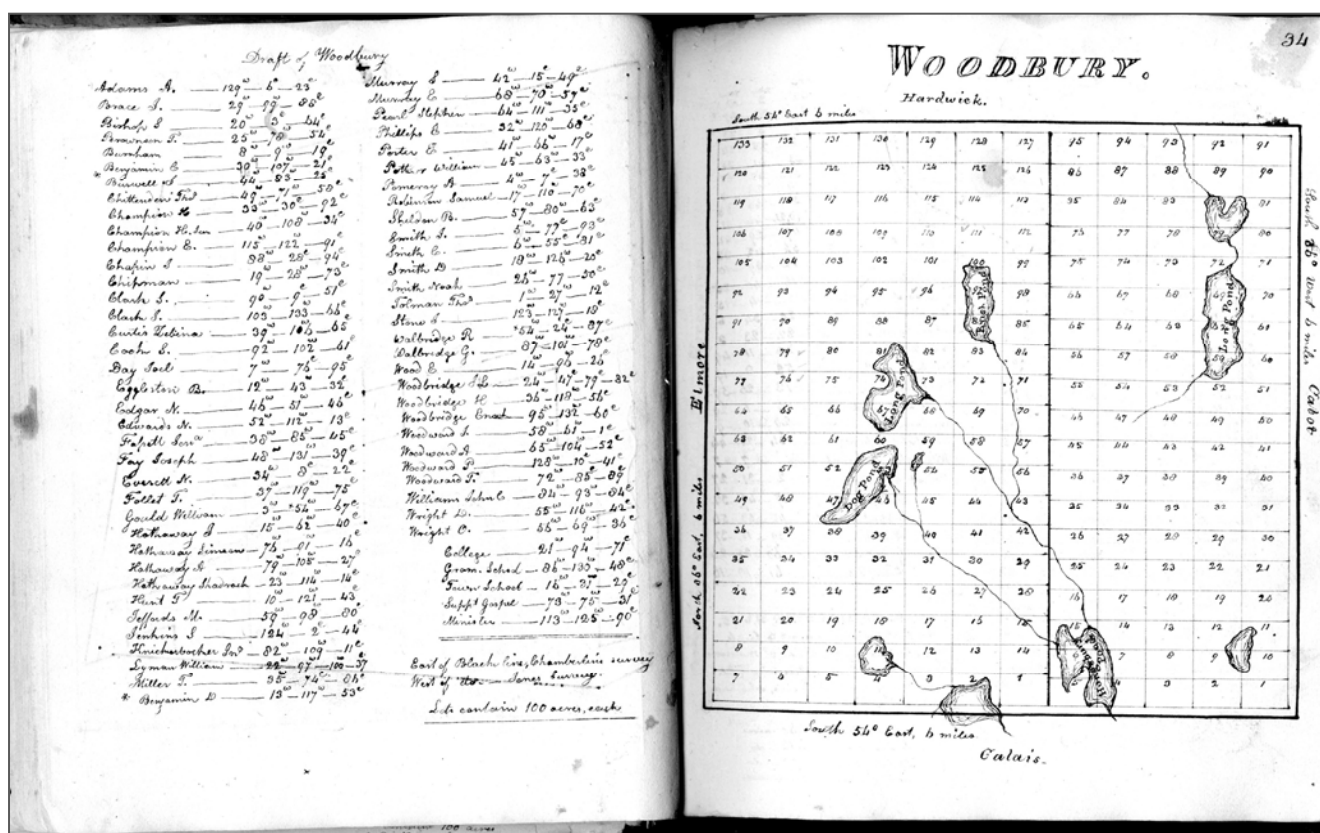 Draft of Woodbury
Adams A. — 129w — 6w — 23e
Brace J. — 29w — 99w — 88e
Bishop S — 20w — 3e — 64e
Brownson T. — 25w — 78w — 54e
Burnham — 8w — 9w — 19e
* Benjamin E — 30w — 107w — 21e
Buswell — 44w — 83w — 25e
Chittenden Thos — 49w — 71w — 58e
Champion H — 33w — 30e — 92e
Champion H. Jun — 40w — 108w — 34e
Champion E. — 115w — 122w — 91e
Chapin S — 88w — 28e — 94e
Chipman — 19w — 26w — 73e
Clark S. — 90w — 9e — 51e
Clark S. — 103w — 133w — 66e
Curtis Zebina — 39w — 106w — 65e
Cook S. — 92w — 102w — 61e
Day Joel — 7w — 76e — 95e
Eggleston B. — 12w — 43w — 32e
Edgar N. — 46w — 51w — 46e
Edwards N. — 52w — 112w — 13e
Fassett — 38w — 85w — 45e
Fay Joseph — 48w — 131w — 39e
Everett N. — 34w — 8e — 22e
Follet T. — 37w — 119w — 75e
Gould William — 3w — *54w — 67e
Hathaway S — 15w — 62w — 40e
Hathaway Simeon — 76w — 81w — 16e
Hathaway A — 79w — 105w — 27e
Hathaway Shadrach — 23w — 114w — 14e
Hunt T — 10w — 121w — 43e
Jeffords M. — 59w — 98w — 80e
Jenkins S — 124w — 2e — 44e
Knickerbocker Jno — 82w — 109w — 11e
Lyman William — 22w — 97w — 100w — 37
Miller T. — 35w — 74w — 86e
* Benjamin D — 13w — 117w — 53e
Murray S — 42w — 15e — 49e
Murray E — 68w — 70w — 57e
Pearl Stephen — 64w — 111w — 35e
Phillips E — 32w — 120w — 68e
Porter E. — 41w — 46w — 17e
William — 45w — 63w — 33e
Pomerry A — 4w — 7e — 38e
Robinson Samuel — 17w — 110w — 70e
Sheldon B. — 57w — 80w — 63e
Smith I. — 5w — 77e — 93e
Smith E. — 6w — 55e — 81e
Smith D — 18w — 126w — 20e
Smith Noah — 26w — 77w — 50e
Tolman Thos — 1w — 27w — 12e
Stone S — 123w — 127w — 18e
Walbridge R — *54w — 24e — 87e
Walbridge G. — 87w — 101w — 78e
Wood E — 14w — 96w — 26e
Woodbridge T L — 24w — 47e — 79e — 82e
Woodbridge H — 36w — 118w — 56e
Woodbridge Enoch — 95w — 132w — 60e
Woodward S. — 58w — 61w — 1e
Woodward A — 65w — 104w — 52e
Woodward P. — 128w — 10e — 41e
Woodward T. — 72w — 85e — 89e
Williams — 84w — 93w — 84e
Wright D. — 55w — 116w — 42e
Wright C. — 66w — 69w — 36e
College — 21w — 94w — 71e
Gram. School — 86w — 130w — 48e
Town School — 16w — 31w — 29e
Suppt Gospel — 73w — 75w — 31e
Minister — 113w — 125w — 90e
East of Black line, Chamberlin survey
West of Do — Jones Survey.
Lots contain 100 acres, each
34
WOODBURY.
Hardwick.
South 54° East 6 miles
133 132 131 130 129 128 127 95 94 93 92 91
120 121 122 123 124 125 126 86 87 88 89 90
119 118 117 116 115 114 113 85 84 83 81
106 107 108 109 110 111 112 76 77 78 79 80
105 104 103 102 101 100 99 75 74 73 72 71
92 93 94 95 96 97 98 66 67 68 69 70
91 90 89 88 87 86 85 65 64 63 62 61
78 79 80 81 82 83 84 56 57 58 59 60
77 76 75 74 73 72 71 55 54 53 52 51
64 65 66 67 68 69 70 46 47 48 49 50
63 62 61 60 59 58 57 45 44 43 42 41
50 51 52 53 54 55 56 36 37 38 39 40
49 48 47 46 45 44 43 35 34 33 32 31
36 37 38 39 40 41 42 26 27 28 29 30
35 34 33 32 31 30 29 25 24 23 22 21
22 23 24 25 26 27 28 16 17 18 19 20
21 20 19 18 17 16 15 15 14 13 12 11
8 9 10 11 12 13 14 7 8 9 10
7 6 5 4 3 2 1 4 3 2 1
Long Pond
Long Pond
Dog Pond
North 36° East, 6 miles
Elmore
South 36° West 6 miles
Cabot
South 54° East, 6 miles
Calais.